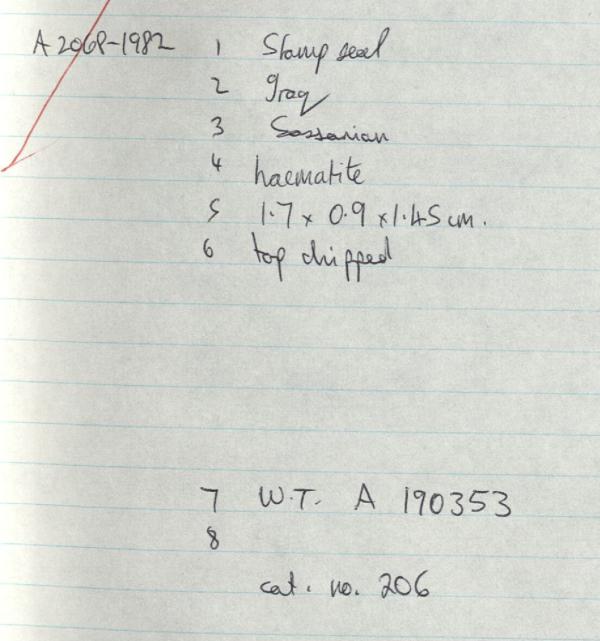 A 2068-1982 1 Stamp seal
2 Iraq
3 Sassanian
4 haematite
5 1.7 x 0.9 x 1.45 cm.
6 top chipped
7 W.T. A 190353
8
cat. no. 206